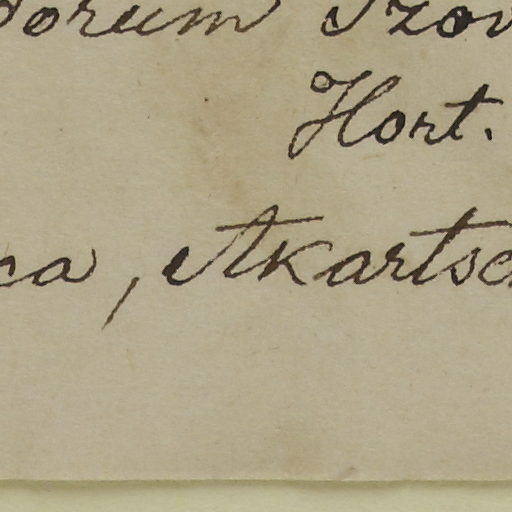 dorum Szov
Hort.
ca, Atkartsc